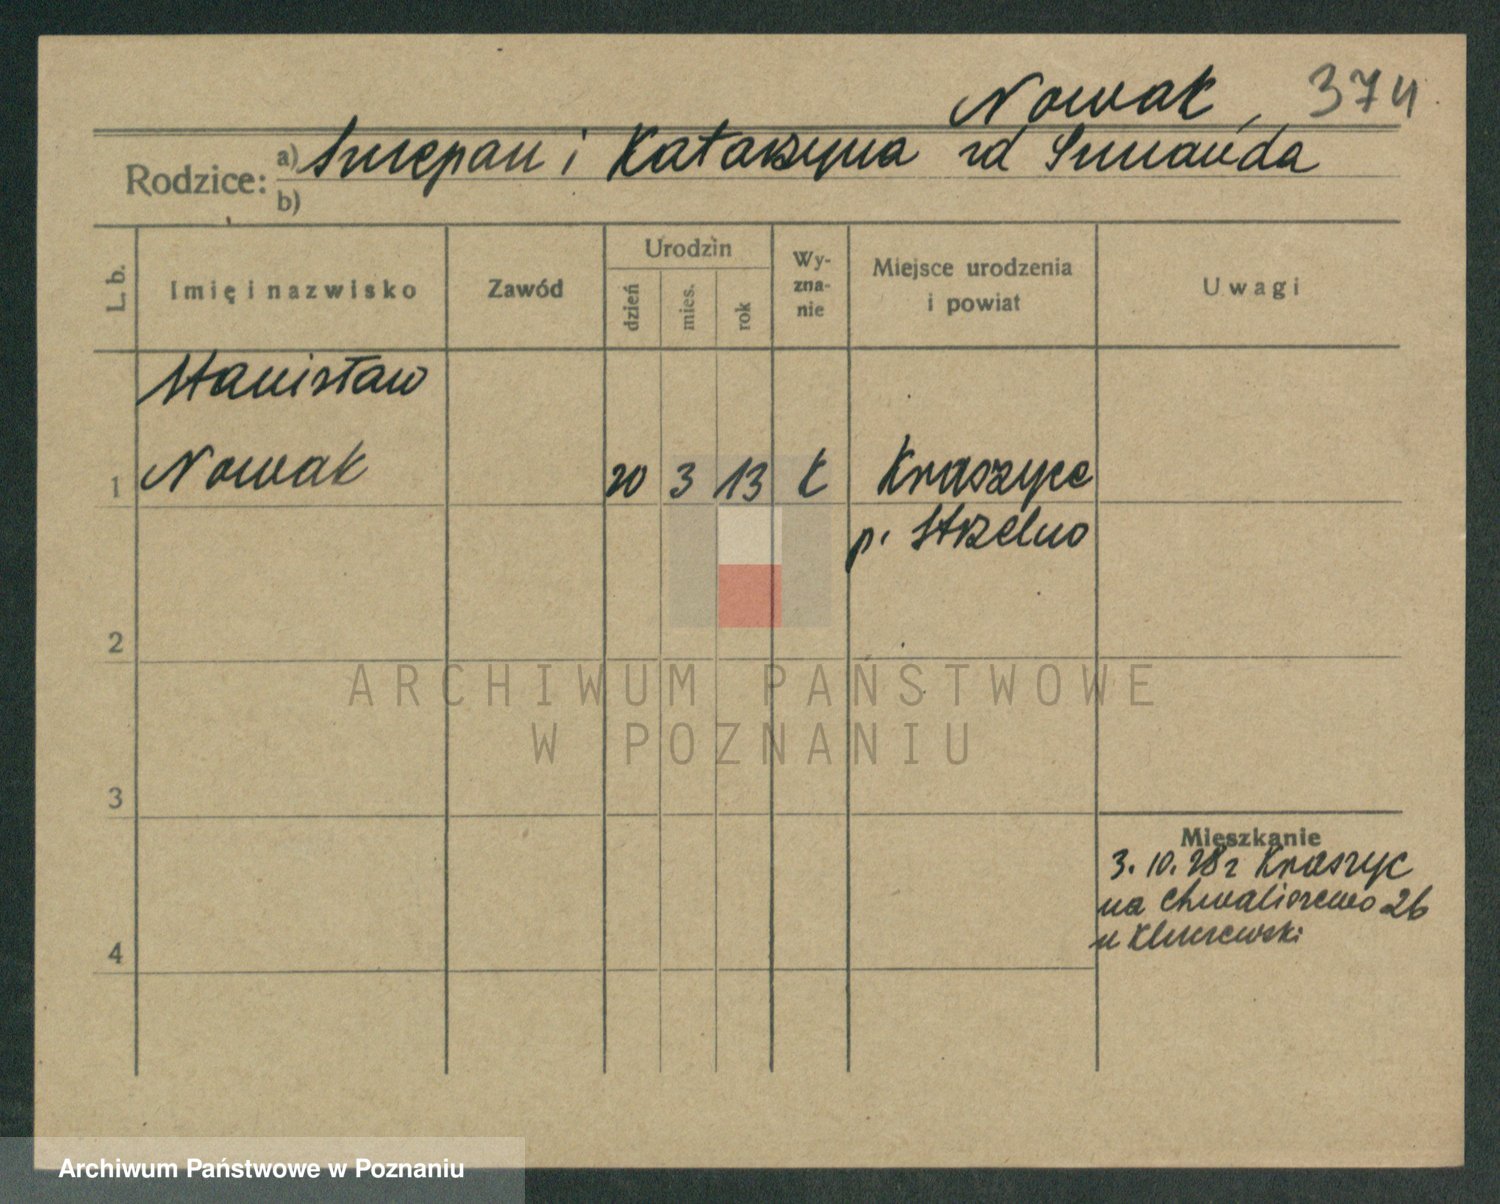 Nowak, 374
Rodzice: a) Szczepan i Katarzyna zd
b)
L. b.
Imię i nazwisko
Zawód
Urodzin
dzień
mies.
rok
Wy-
zna-
nie
Miejsce urodzenia
i powiat
Uwagi
Stanisław
1 Nowak 20 3 13 k Kraszyce
p. Strzelno
2
ARCHIWUM PAŃSTWOWE
W POZNANIU
3
Mieszkanie
3. 10. 28 r Kraszyc
na 26
u
4
Archiwum Państwowe w Poznaniu